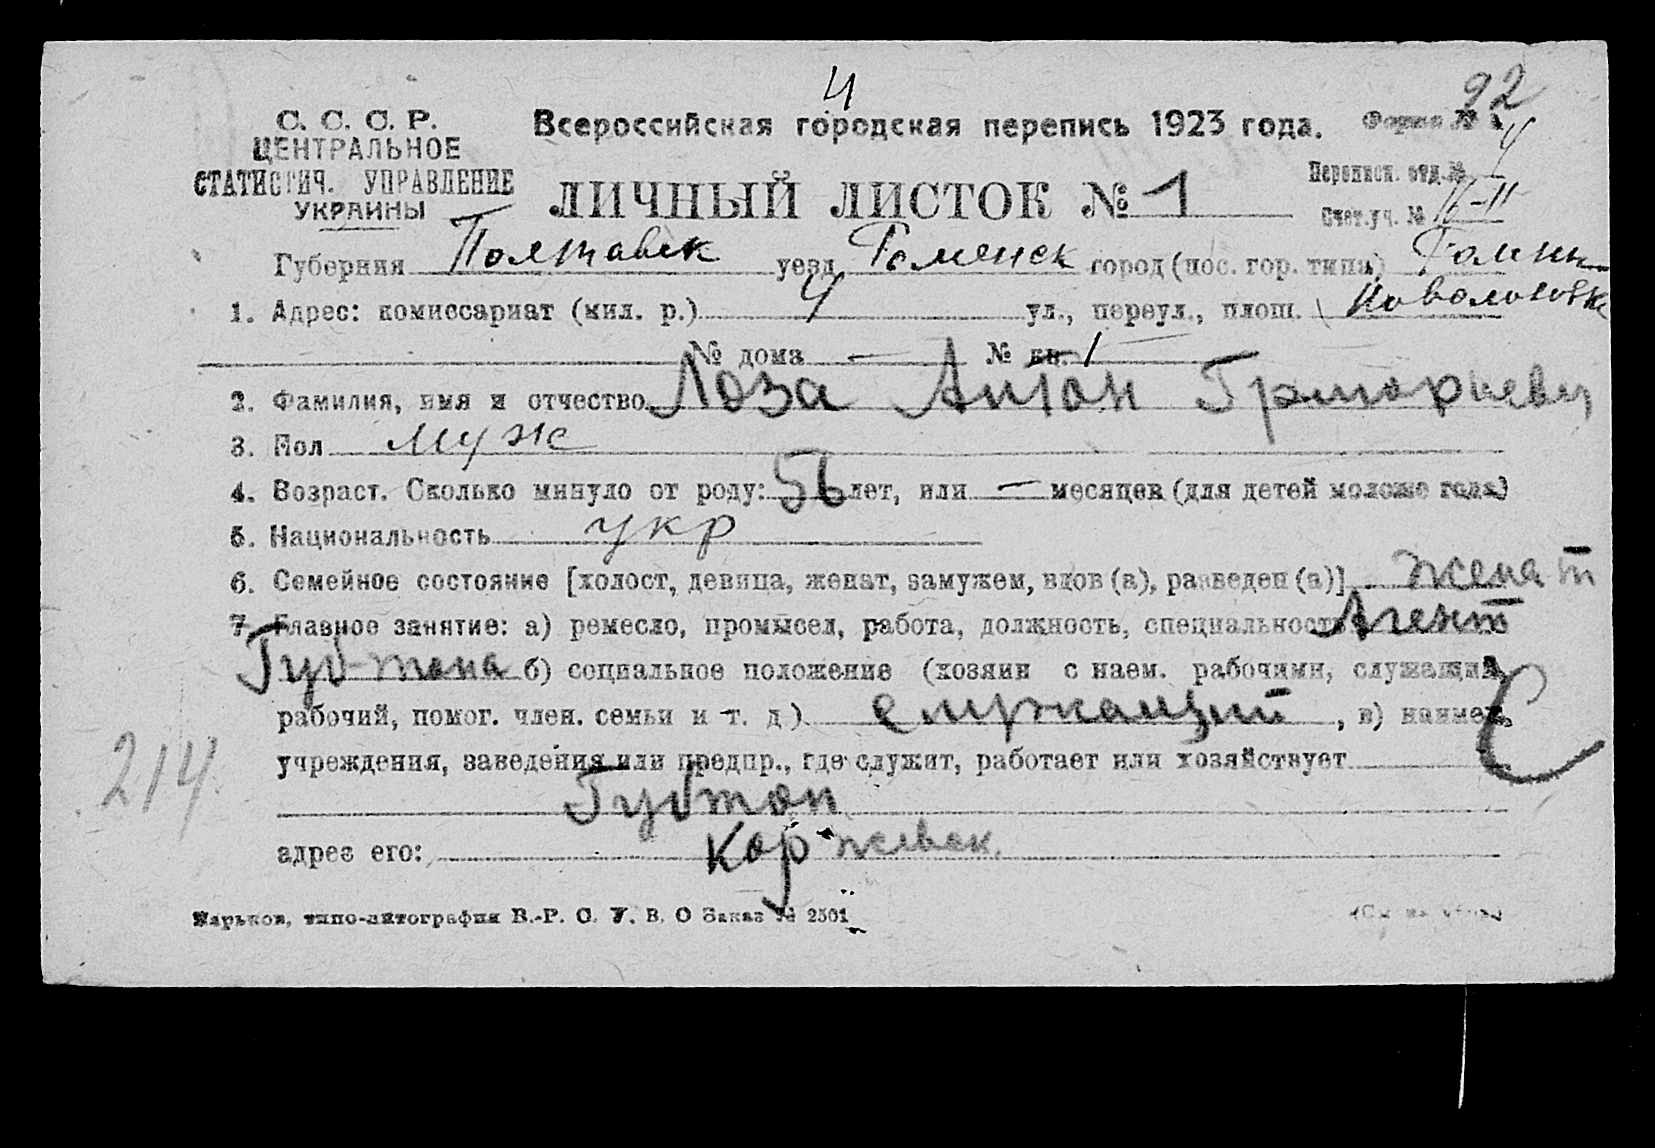 4
92
С. С. С. Р.
Всероссийская городская перепись 1923 года.
Форма №
4
ЦЕНТРАЛЬНОЕ
СТАТИСТИЧ. УПРАВЛЕНИЕ
УКРАИНЫ
ЛИЧНЫЙ ЛИСТОК № 1
Переписн. отд. №
Счет. уч. №
Губерния Полтавск уезд Роменск город (пос. гор. типа) Ромны
1. Адрес: комиссариат (мил. р.) 4 ул., переул., площ.
№ дома — № кв. 1
2. Фамилия, имя и отчество Лоза Антон Григориевич
3. Пол муж
4. Возраст. Сколько минуло от роду: 56 лет, или — месяцев (для детей моложе года)
5. Национальность укр
6. Семейное состояние [холост, девица, женат, замужем, вдов (а), разведен (а)] женат
7. Главное занятие: а) ремесло, промысел, работа, должность, специальность Агент
Губ-топа б) социальное положение (хозяин с наем. рабочими, служащий,
рабочий, помог. член. семьи и т. д.) служащий, в) наимен.
С
учреждения, заведения или предпр., где служит, работает или хозяйствует
214
Губтоп
адрес его: Коржевск.
Харьков, типо-литография В.-Р. С. У. В. О Заказ № 2501